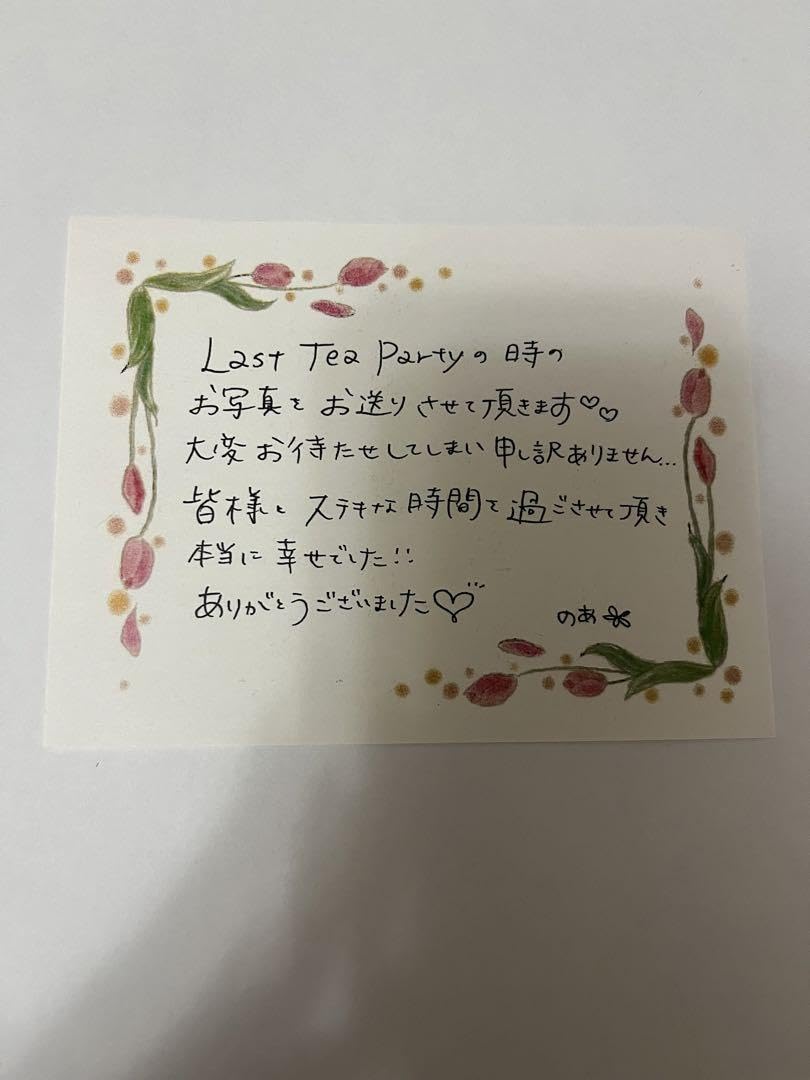 Last Tea Partyの時の
お写真をお送りさせて頂きます♡♡
大変お待たせしてしまい申し訳ありません...
皆様とステキな時間を過ごさせて頂き
本当に幸せでした!!
ありがとうございました♡
のあ